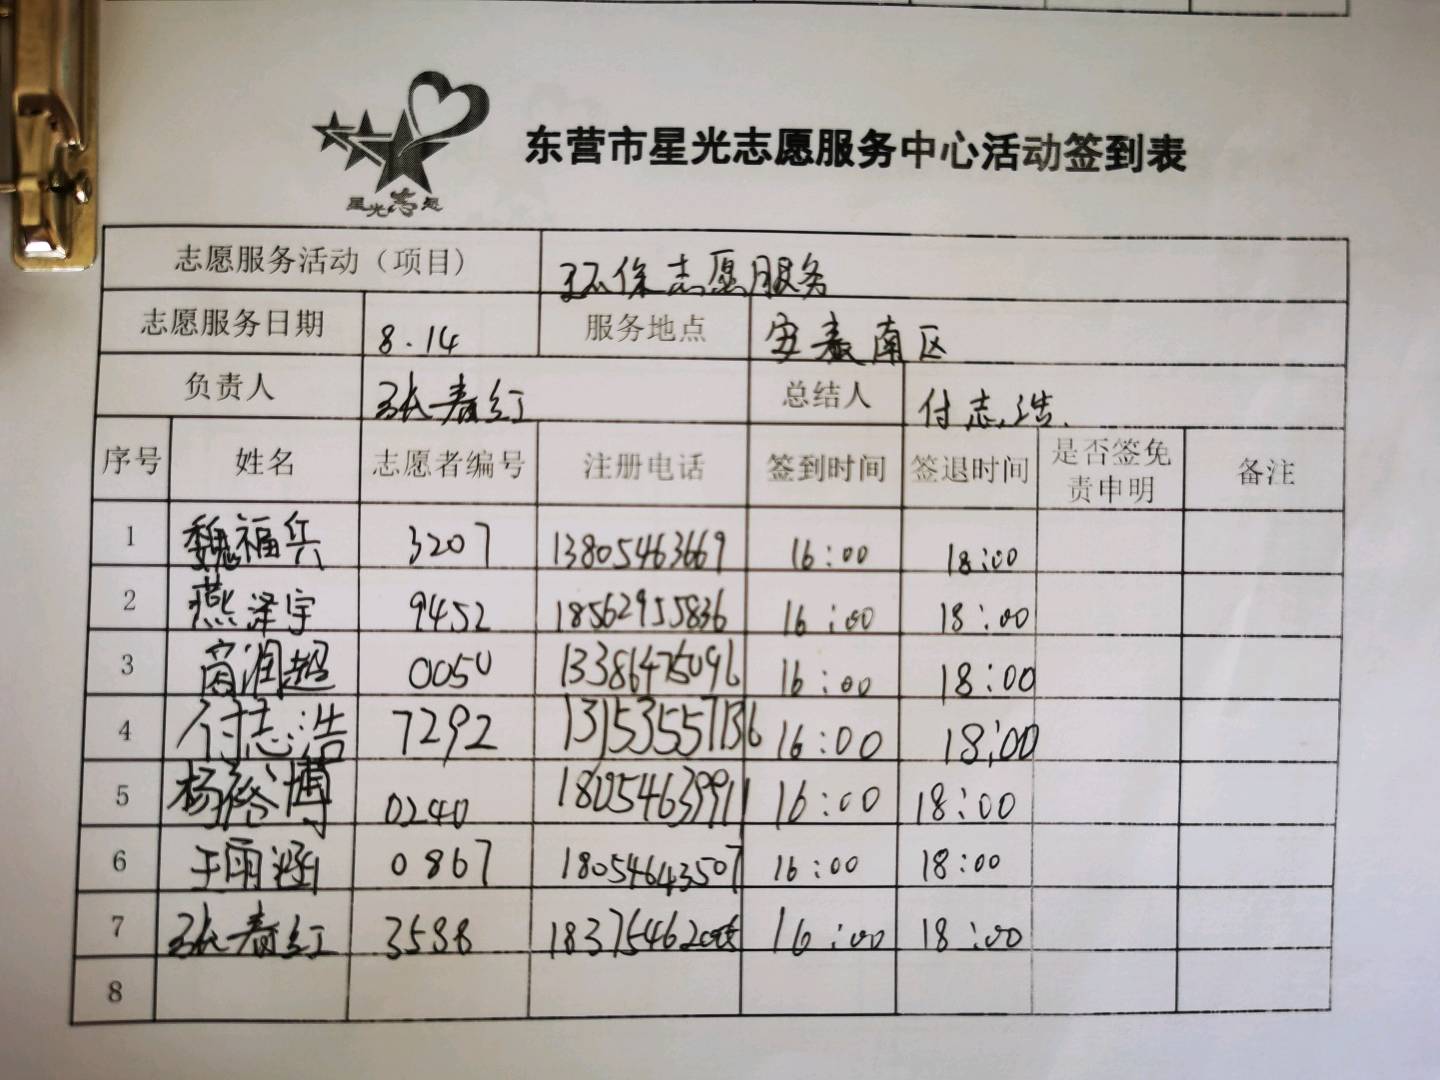 东营市星光志愿服务中心活动签到表
星光志愿
志愿服务活动（项目） 环保志愿服务
志愿服务日期 8.14 服务地点 安泰南区
负责人 张春红 总结人 付志浩
序号 姓名 志愿者编号 注册电话 签到时间 签退时间 是否签免责申明 备注
1 魏福兵 3207 13805463669 16:00 18:00
2 燕泽宇 9452 18562955836 16:00 18:00
3 润超 0050 13386475096 16:00 18:00
4 付志浩 7292 13153557136 16:00 18:00
5 杨裕博 0240 18054639911 16:00 18:00
6 王雨涵 0867 18054643507 16:00 18:00
7 张春红 3588 16:00 18:00
8